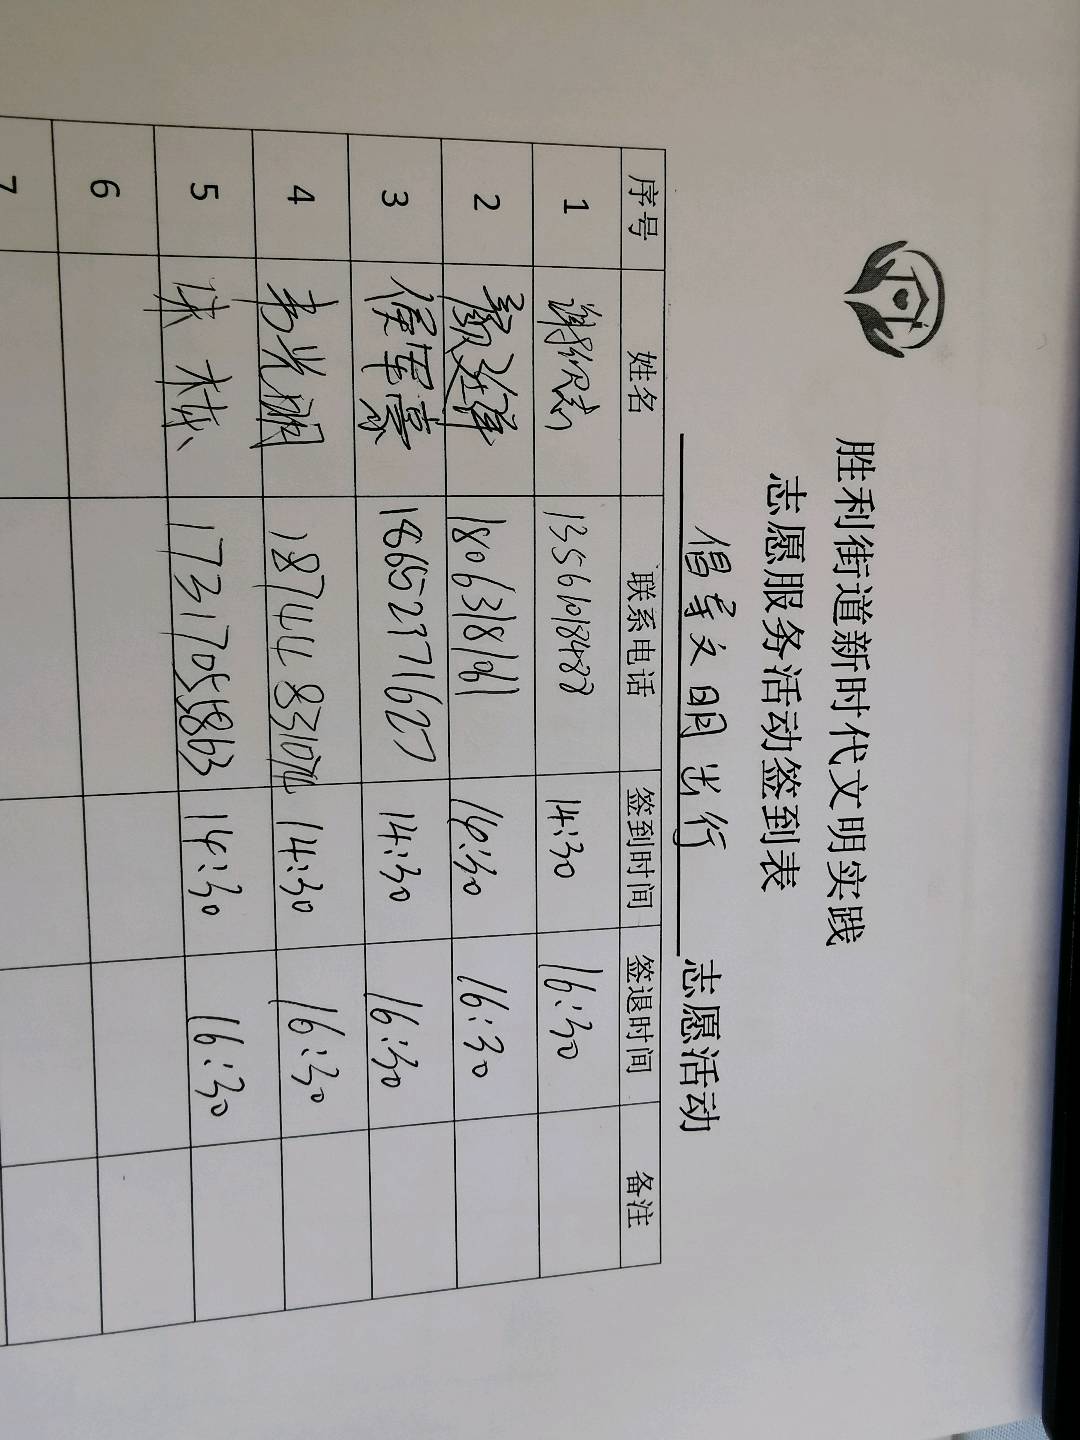 胜利街道新时代文明实践
志愿服务活动签到表
倡导文明出行 志愿活动
序号 姓名 联系电话 签到时间 签退时间 备注
1 14:30 16:30
2 18063181961 14:30 16:30
3 侯军豪 18652771627 14:30 16:30
4 14:30 16:30
5 17317055863 14:30 16:30
6
7